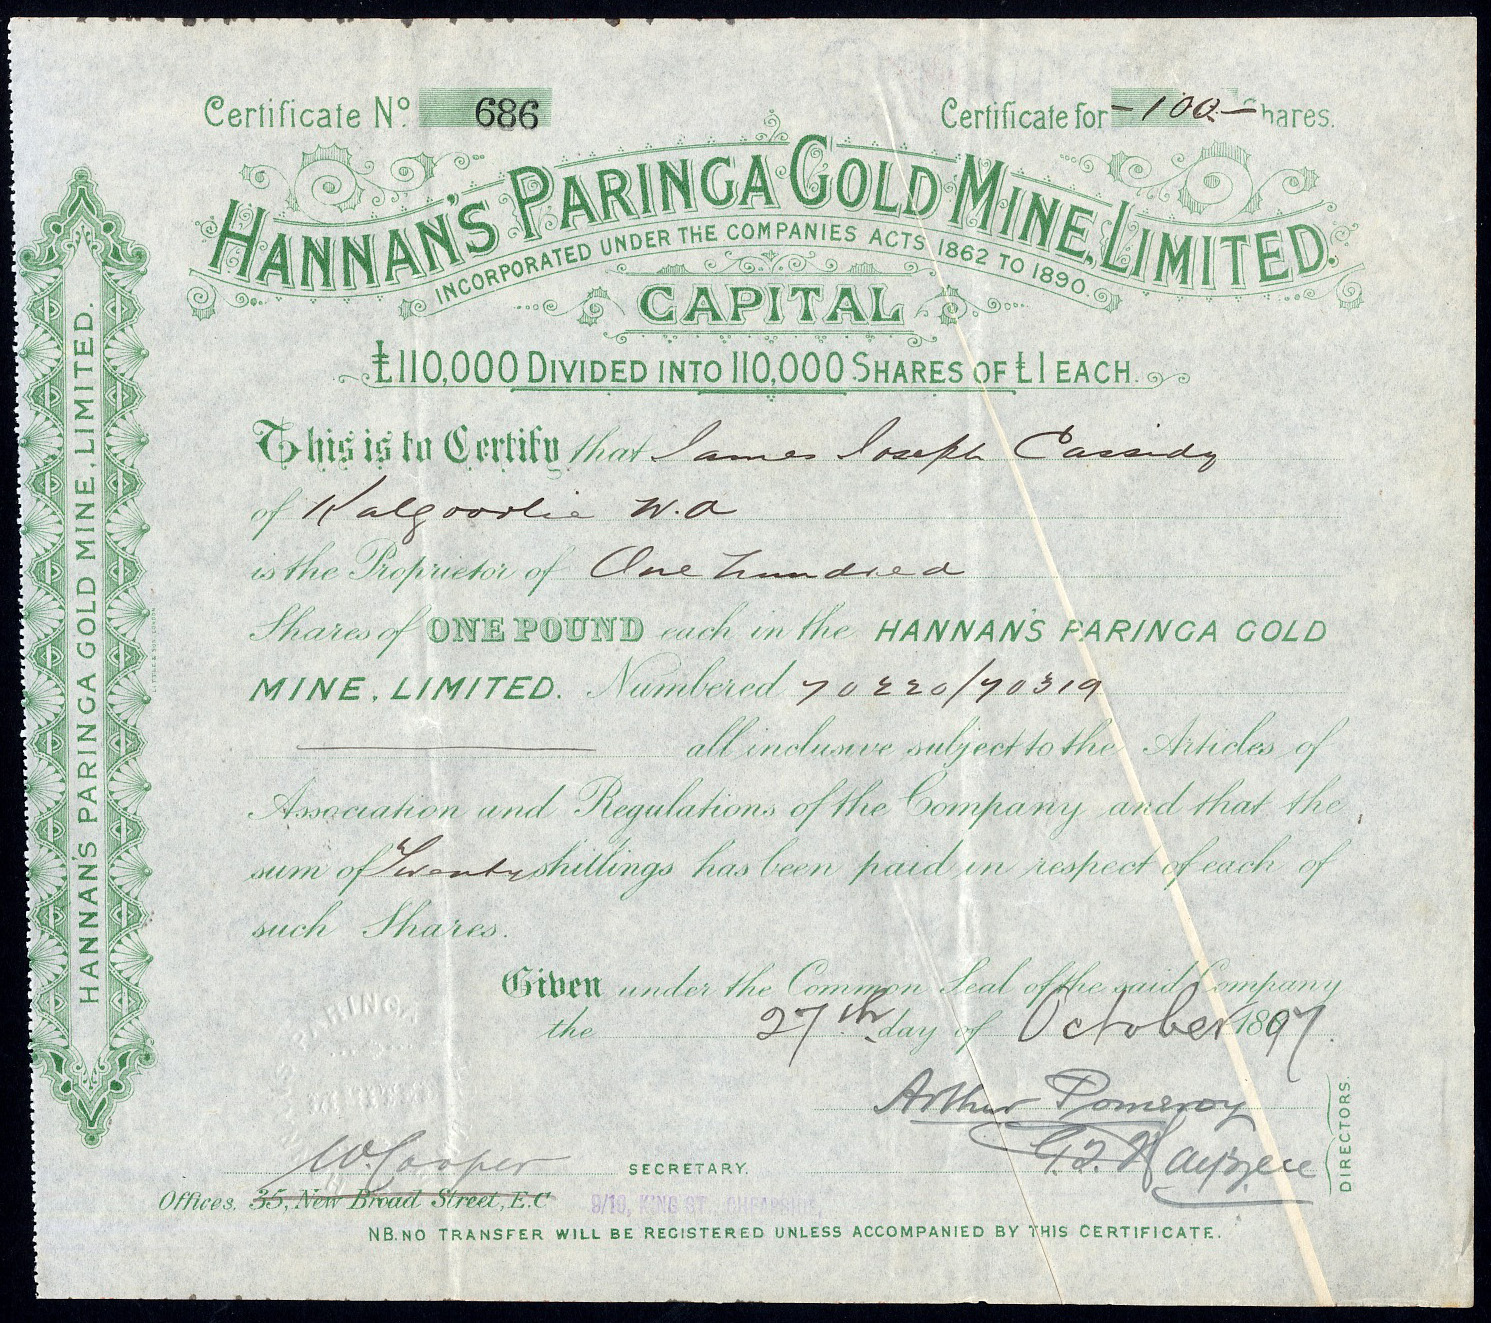 Certificate No. 686
Certificate for -100.- Shares.
HANNAN'S PARINGA GOLD MINE, LIMITED.
INCORPORATED UNDER THE COMPANIES ACTS 1862 TO 1890.
CAPITAL
£110,000 DIVIDED INTO 110,000 SHARES OF £1 EACH.
This is to Certify that James Joseph Cassidy
of Kalgoorlie W.A
is the Proprietor of One hundred
Shares of ONE POUND each in the HANNAN'S PARINGA GOLD
MINE, LIMITED. Numbered 70220/70319
all inclusive subject to the Articles of
Association and Regulations of the Company and that the
sum of Twenty shillings has been paid in respect of each of
such Shares.
Given under the Common Seal of the said Company
the 27th day of October 1897.
Arthur Pomeroy
DIRECTORS.
W. Cooper SECRETARY.
Offices. 35, New Broad Street, E.C 9/10, KING ST., CHEAPSIDE,
NB. NO TRANSFER WILL BE REGISTERED UNLESS ACCOMPANIED BY THIS CERTIFICATE.
HANNAN'S PARINGA GOLD MINE, LIMITED.
PARINGA